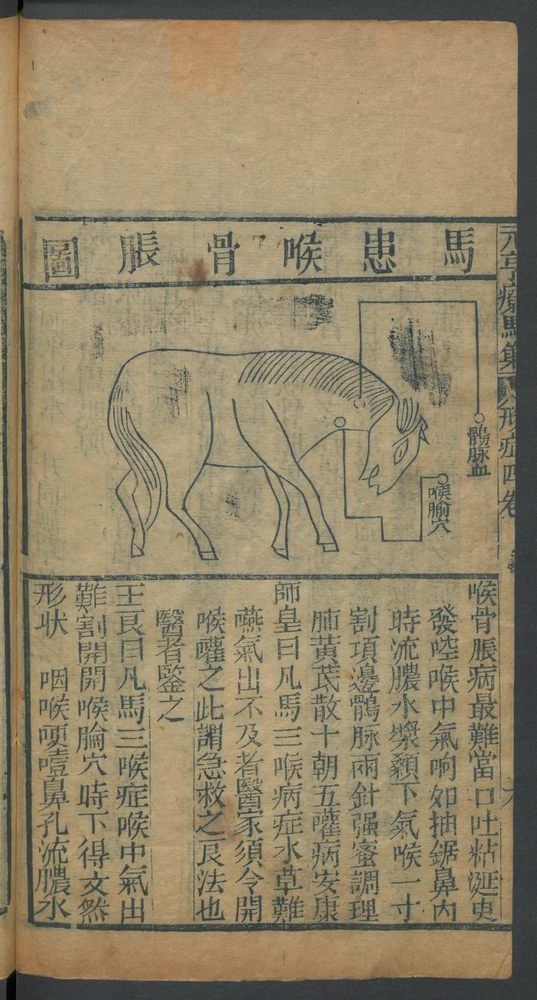 馬患喉骨脹圖
元亨療馬集
形症四卷
鶻脉血
喉腧穴
喉骨脹病最難當口吐粘涎更
發啌喉中氣响如抽鋸鼻內
時流膿水漿顙下氣喉一寸
割項邊鶻脉兩針强蜜調理
肺黄茋散十朝五嚾病安康
師皇曰凡馬三喉病症水草難
嚥氣出不及者醫家須令開
喉嚾之此謂急救之良法也
醫者鑒之
王良曰凡馬三喉症喉中氣出
難割開開喉腧穴時下得文然
形状 咽喉哽噎鼻孔流膿水